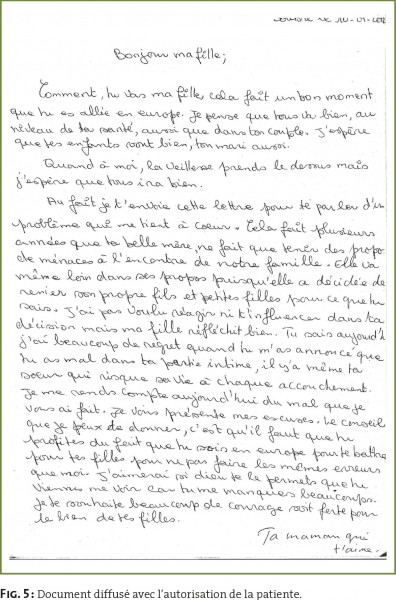 Bonjour ma fille;
Comment, tu vas ma fille, cela fait un bon moment
que tu es allée en europe. Je pense que tous va bien, au
niveau de ta santé, aussi que dans ton couple. J'espère
que tes enfants vont bien, ton mari aussi.
Quand à moi, la veillesse prends le dessus mais
j'espère que tous ira bien.
Au fait je t'envoie cette lettre pour te parler d'un
problème qui me tient à coeur. Cela fait plusieurs
années que ta belle mère, ne fait que tenir des propos
de menaces à l'encontre de notre famille. Elle va
même loin dans ses propos puisqu'elle a décidée de
renier son propre fils et petites filles pour ce que tu
sais. J'ai pas voulu réagir ni t'influencer dans ta
décision mais ma fille réfléchit bien. Tu sais aujourd'h
j'ai beaucoup de regret quand tu m'as annoncé que
tu as mal dans ta partie intime, il y'a même ta
soeur qui risque sa vie à chaque accouchement.
Je me rends compte aujourd'hui du mal que je
vous ai fait. Je vous présente mes excuses. Le conseil
que je peux te donner, c'est qu'il faut que tu
profites du fait que tu sois en europe pour te battre
pour tes filles pour ne pas faire les mêmes erreurs
que moi. J'aimerai si dieu te le permets que tu
viennes me voir car tu me manques beaucoups.
Je te souhaite beaucoup de courage soit forte pour
le bien de tes filles.
Ta maman qui
t'aime.
FIG. 5 : Document diffusé avec l'autorisation de la patiente.